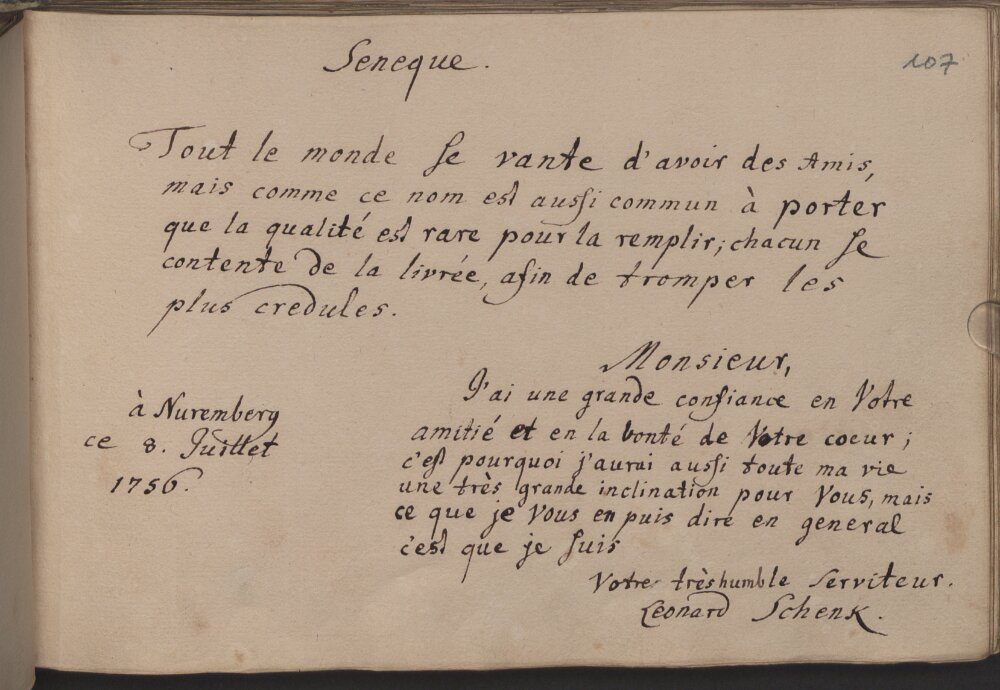 Seneque.
107
Tout le monde se vante d'avoir des Amis,
mais comme ce nom est aussi commun à porter
que la qualité est rare pour la remplir; chacun se
contente de la livrée, afin de tromper les
plus credules.
Monsieur,
J'ai une grande confiance en Votre
amitié et en la bonté de Votre coeur;
c'est pourquoi j'aurai aussi toute ma vie
une très grande inclination pour Vous, mais
ce que je Vous en puis dire en general
c'est que je suis
Votre trèshumble Serviteur.
Leonard Schenk.
à Nuremberg
ce 8. Juillet
1756.